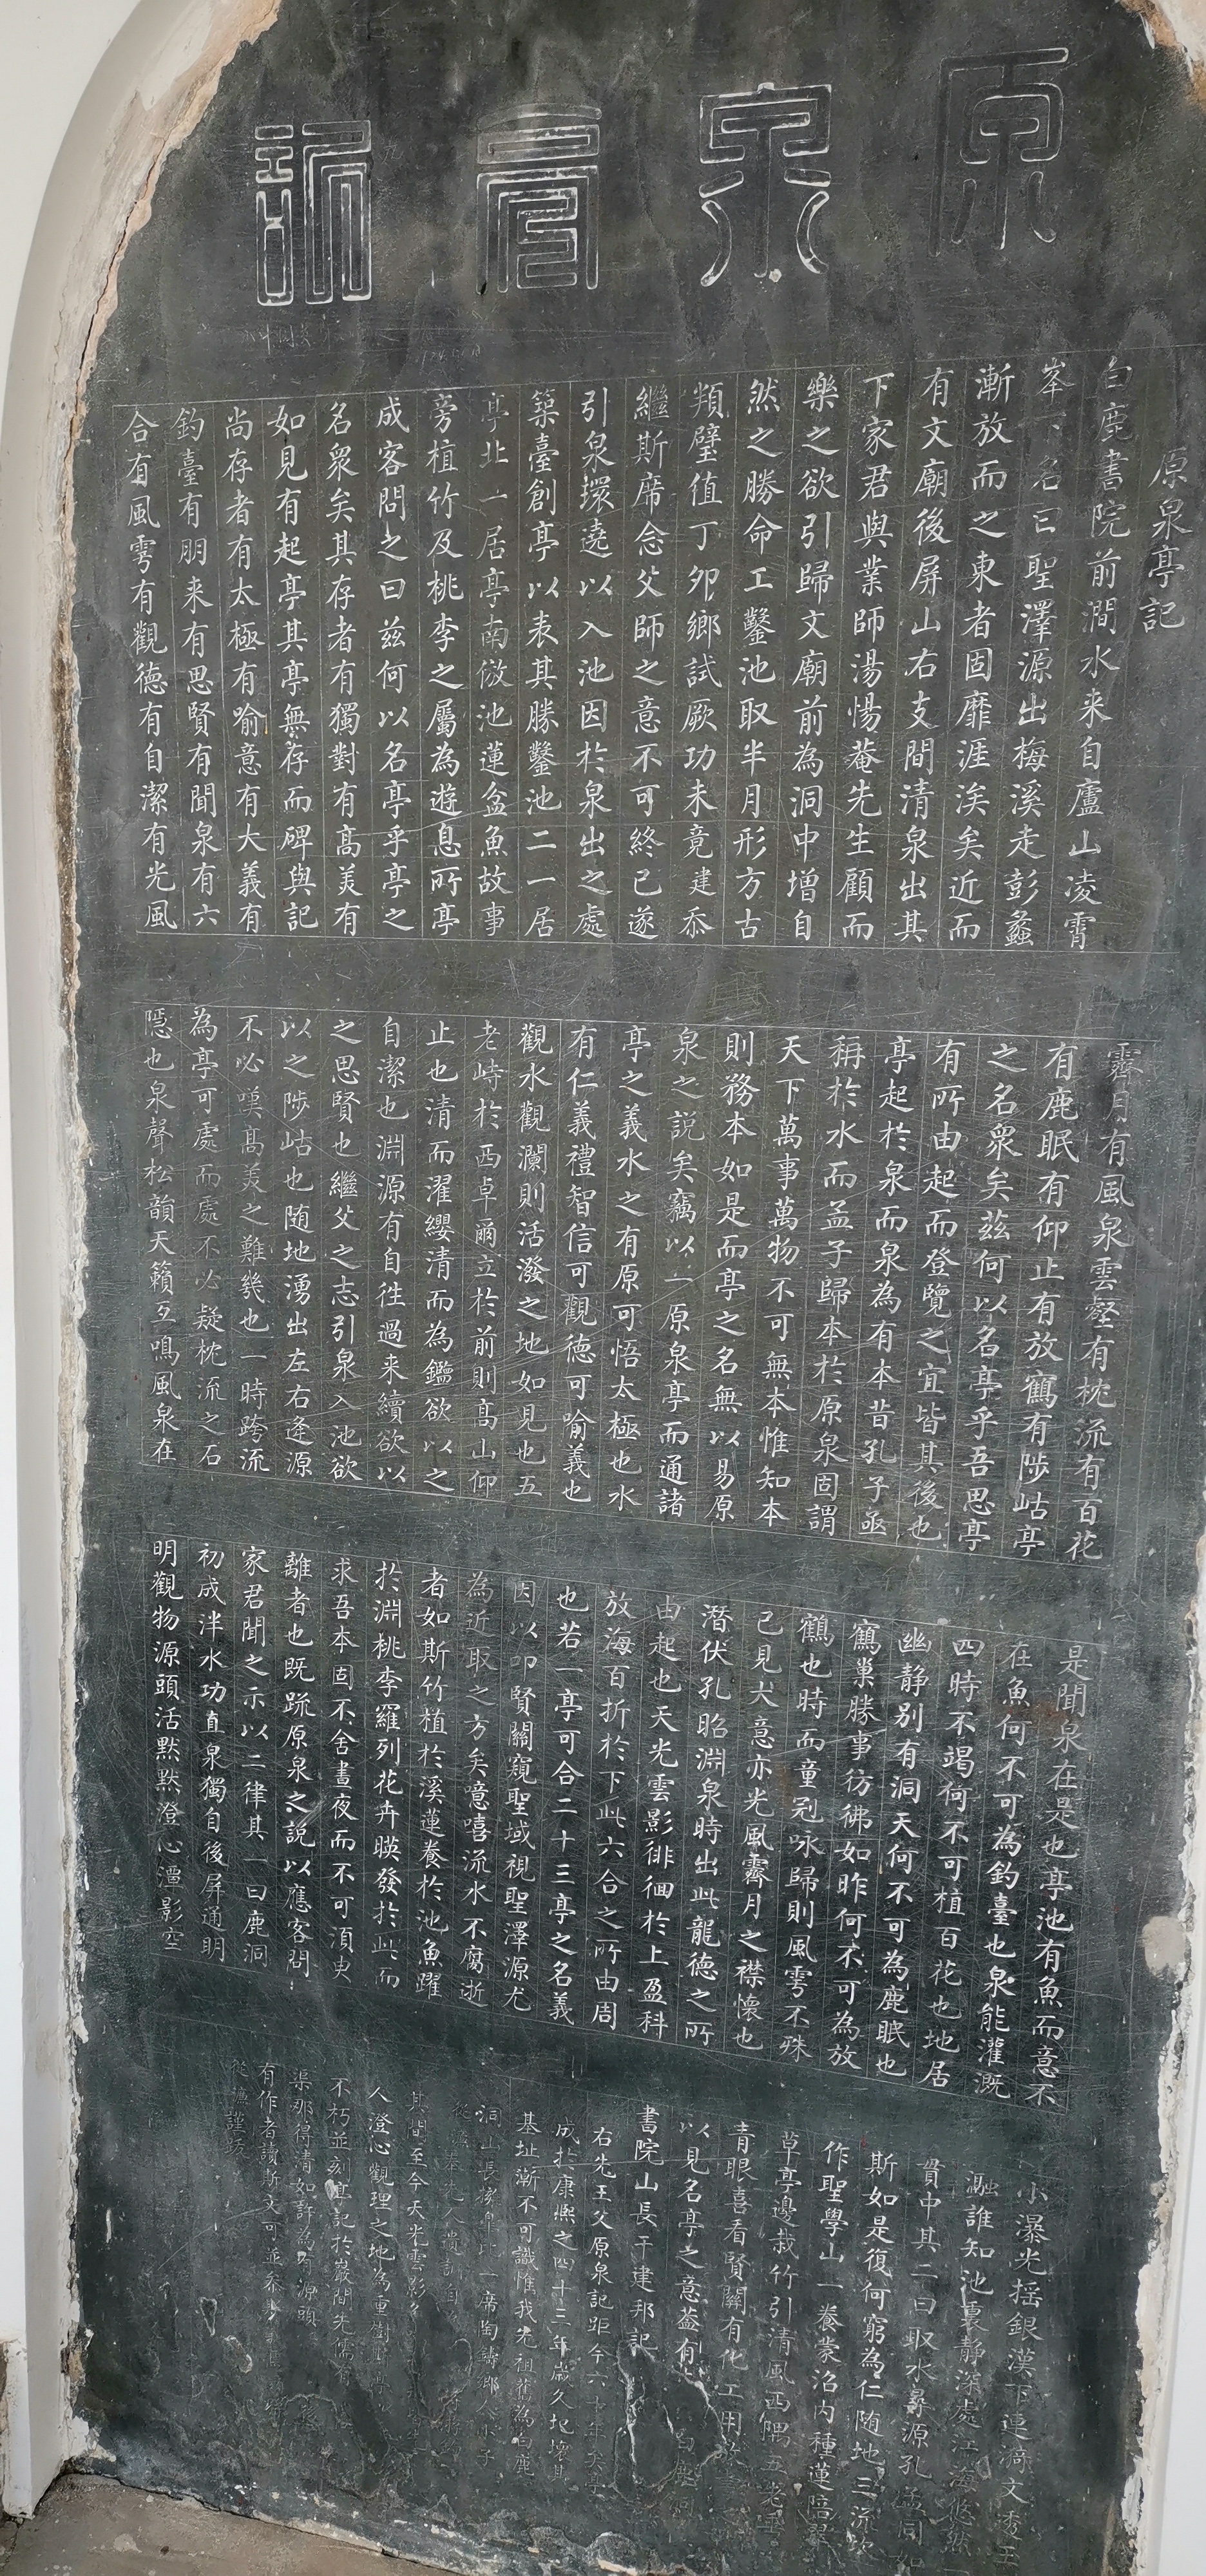 原泉亭記
原泉亭記
白鹿書院前澗水来自廬山凌霄
峯下名曰聖澤源出梅溪走彭蠡
漸放而之東者固靡涯涘矣近而
有文廟後屏山右支間清泉出其
下家君與業師湯惕菴先生顧而
樂之欲引歸文廟前為洞中增自
然之勝命工鑿池取半月形方古
頖璧值丁卯鄉試厥功未竟建忝
繼斯席念父師之意不可終已遂
引泉環遶以入池因於泉出之處
築臺創亭以表其勝鑿池二一居
亭北一居亭南倣池蓮盆魚故事
旁植竹及桃李之屬為遊息所亭
成客問之曰兹何以名亭乎亭之
名衆矣其存者有獨對有高美有
如見有起亭其亭無存而碑與記
尚存者有太極有喻意有大義有
釣臺有朋来有思賢有聞泉有六
合有風雩有觀德有自潔有光風
霽月有風泉雲壑有枕流有百花
有鹿眠有仰止有放鶴有陟岵亭
之名衆矣茲何以名亭乎吾思亭
有所由起而登覽之宜皆其後也
亭起於泉而泉為有本昔孔子亟
稱於水而孟子歸本於原泉固謂
天下萬事萬物不可無本惟知本
則務本如是而亭之名無以易原
泉之説矣竊以一原泉亭而通諸
亭之義水之有原可悟太極也水
有仁義禮智信可觀德可喻義也
觀水觀瀾則活潑之地如見也五
老峙於西卓爾立於前則高山仰
止也清而濯纓清而為鑑欲以之
自潔也淵源有自徃過来續欲以
之思賢也繼父之志引泉入池欲
以之陟岵也随地湧出左右逢源
不必嘆高美之難幾也一時跨流
為亭可處而處不必疑枕流之石
隱也泉聲松韻天籟互鳴風泉在
是聞泉在是也亭池有魚而意不
在魚何不可為釣臺也泉能灌溉
四時不竭何不可植百花也地居
幽静别有洞天何不可為鹿眠也
鶴巢勝事彷彿如昨何不可為放
鶴也時而童冠咏歸則風雩不殊
已見大意亦光風霽月之襟懷也
潛伏孔昭淵泉時出此龍德之所
由起也天光雲影徘徊於上盈科
放海百折於下此六合之所由周
也若一亭可合二十三亭之名義
因以卬賢關窺聖域視聖澤源尤
為近取之方矣噫嘻流水不腐逝
者如斯竹植於溪蓮養於池魚躍
於淵桃李羅列花卉暎發於此而
求吾本固不舍晝夜而不可湏臾
離者也既䟽原泉之説以應客問
家君聞之示以二律其一曰鹿洞
初成泮水功直泉獨自後屏通明
明觀物源頭活黙黙澄心潭影空
小瀑光揺銀漢下連漪文透玉
誰知池裏静深處江海悠然
貫中其二曰取水尋源孔孟同如
斯如是復何窮為仁随地三流坎
作聖學山一養蒙沼内種蓮陪翠
草亭邊栽竹引清風西隅五老
青眼喜看賢關有化工用
以見名亭之意葢有
書院山長干建邦記
右先王父原泉記距今六十年矣亭
成於康熙之四十三年歲久圮壞其
基址漸不可識惟我先祖舊為白鹿
洞山長一席陶鑄
其間至今天光雲影
人澄心觀理之地為重樹
不朽並刻亭記於巖間先儒有
渠那得清如許為有源頭
有作者讀斯文可並